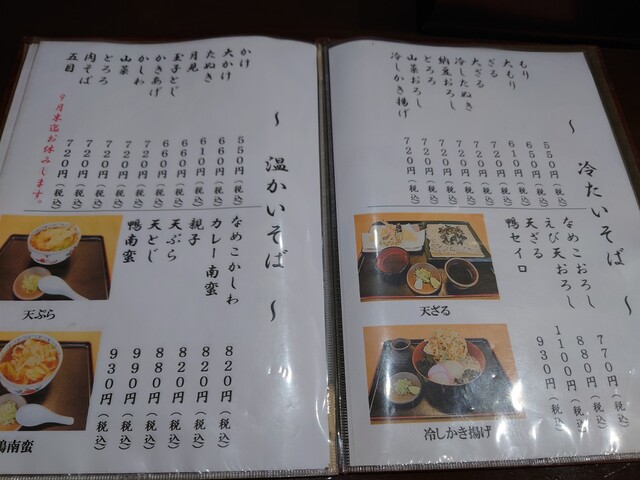 ～ 冷たいそば ～
もり 550円(税込)
大もり 650円(税込)
ざる 610円(税込)
大ざる 720円(税込)
冷したぬき 720円(税込)
納豆おろし 720円(税込)
とろろ 720円(税込)
山菜おろし 720円(税込)
冷しかき揚げ 720円(税込)
なめこおろし 770円(税込)
えび天おろし 880円(税込)
天ざる 1100円(税込)
鴨セイロ 930円(税込)
天ざる
冷しかき揚げ
～ 温かいそば ～
かけ 550円(税込)
大かけ 660円(税込)
たぬき 610円(税込)
月見 660円(税込)
玉子とじ 660円(税込)
かきあげ 720円(税込)
かしわ 720円(税込)
山菜 720円(税込)
とろろ 720円(税込)
肉そば 720円(税込)
五目 9月末迄お休みします。
なめこかしわ 820円(税込)
カレー南蛮 820円(税込)
親子 820円(税込)
天ぷら 880円(税込)
天とじ 990円(税込)
鴨南蛮 930円(税込)
天ぷら
鴨南蛮